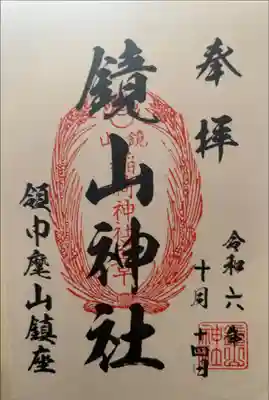 奉拝
鏡山神社
領巾麾山鎮座
令和六年
十月
十四日